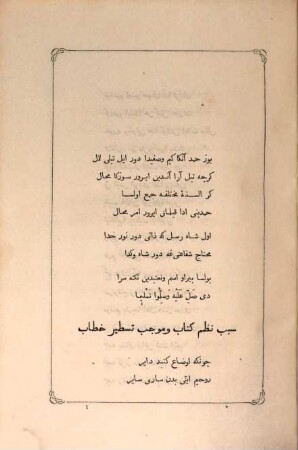 یوز حمد آنکا کیم وصفیدا دور ایل تیلی لال
کرچه تیل آرا آندین ایرور سوزکا مجال
کر السنهٔ مختلفه جمع اولسا
حمدینی ادا قیلماق ایرور امر محال
اول شاه رسل که ذاتی دور نور خدا
محتاج شفاعتی‌غه دور شاه وکدا
بولسا بیراو امتم ونعتیدین نکته سرا
دی صَلِّ عَلَیْهِ وَسَلِّمُوا تَسْلِیما
سبب نظم کتاب وموجب تسطیر خطاب
چونکه اوضاع کنبد دایر
روحیم ایتی بدن ساری سایر